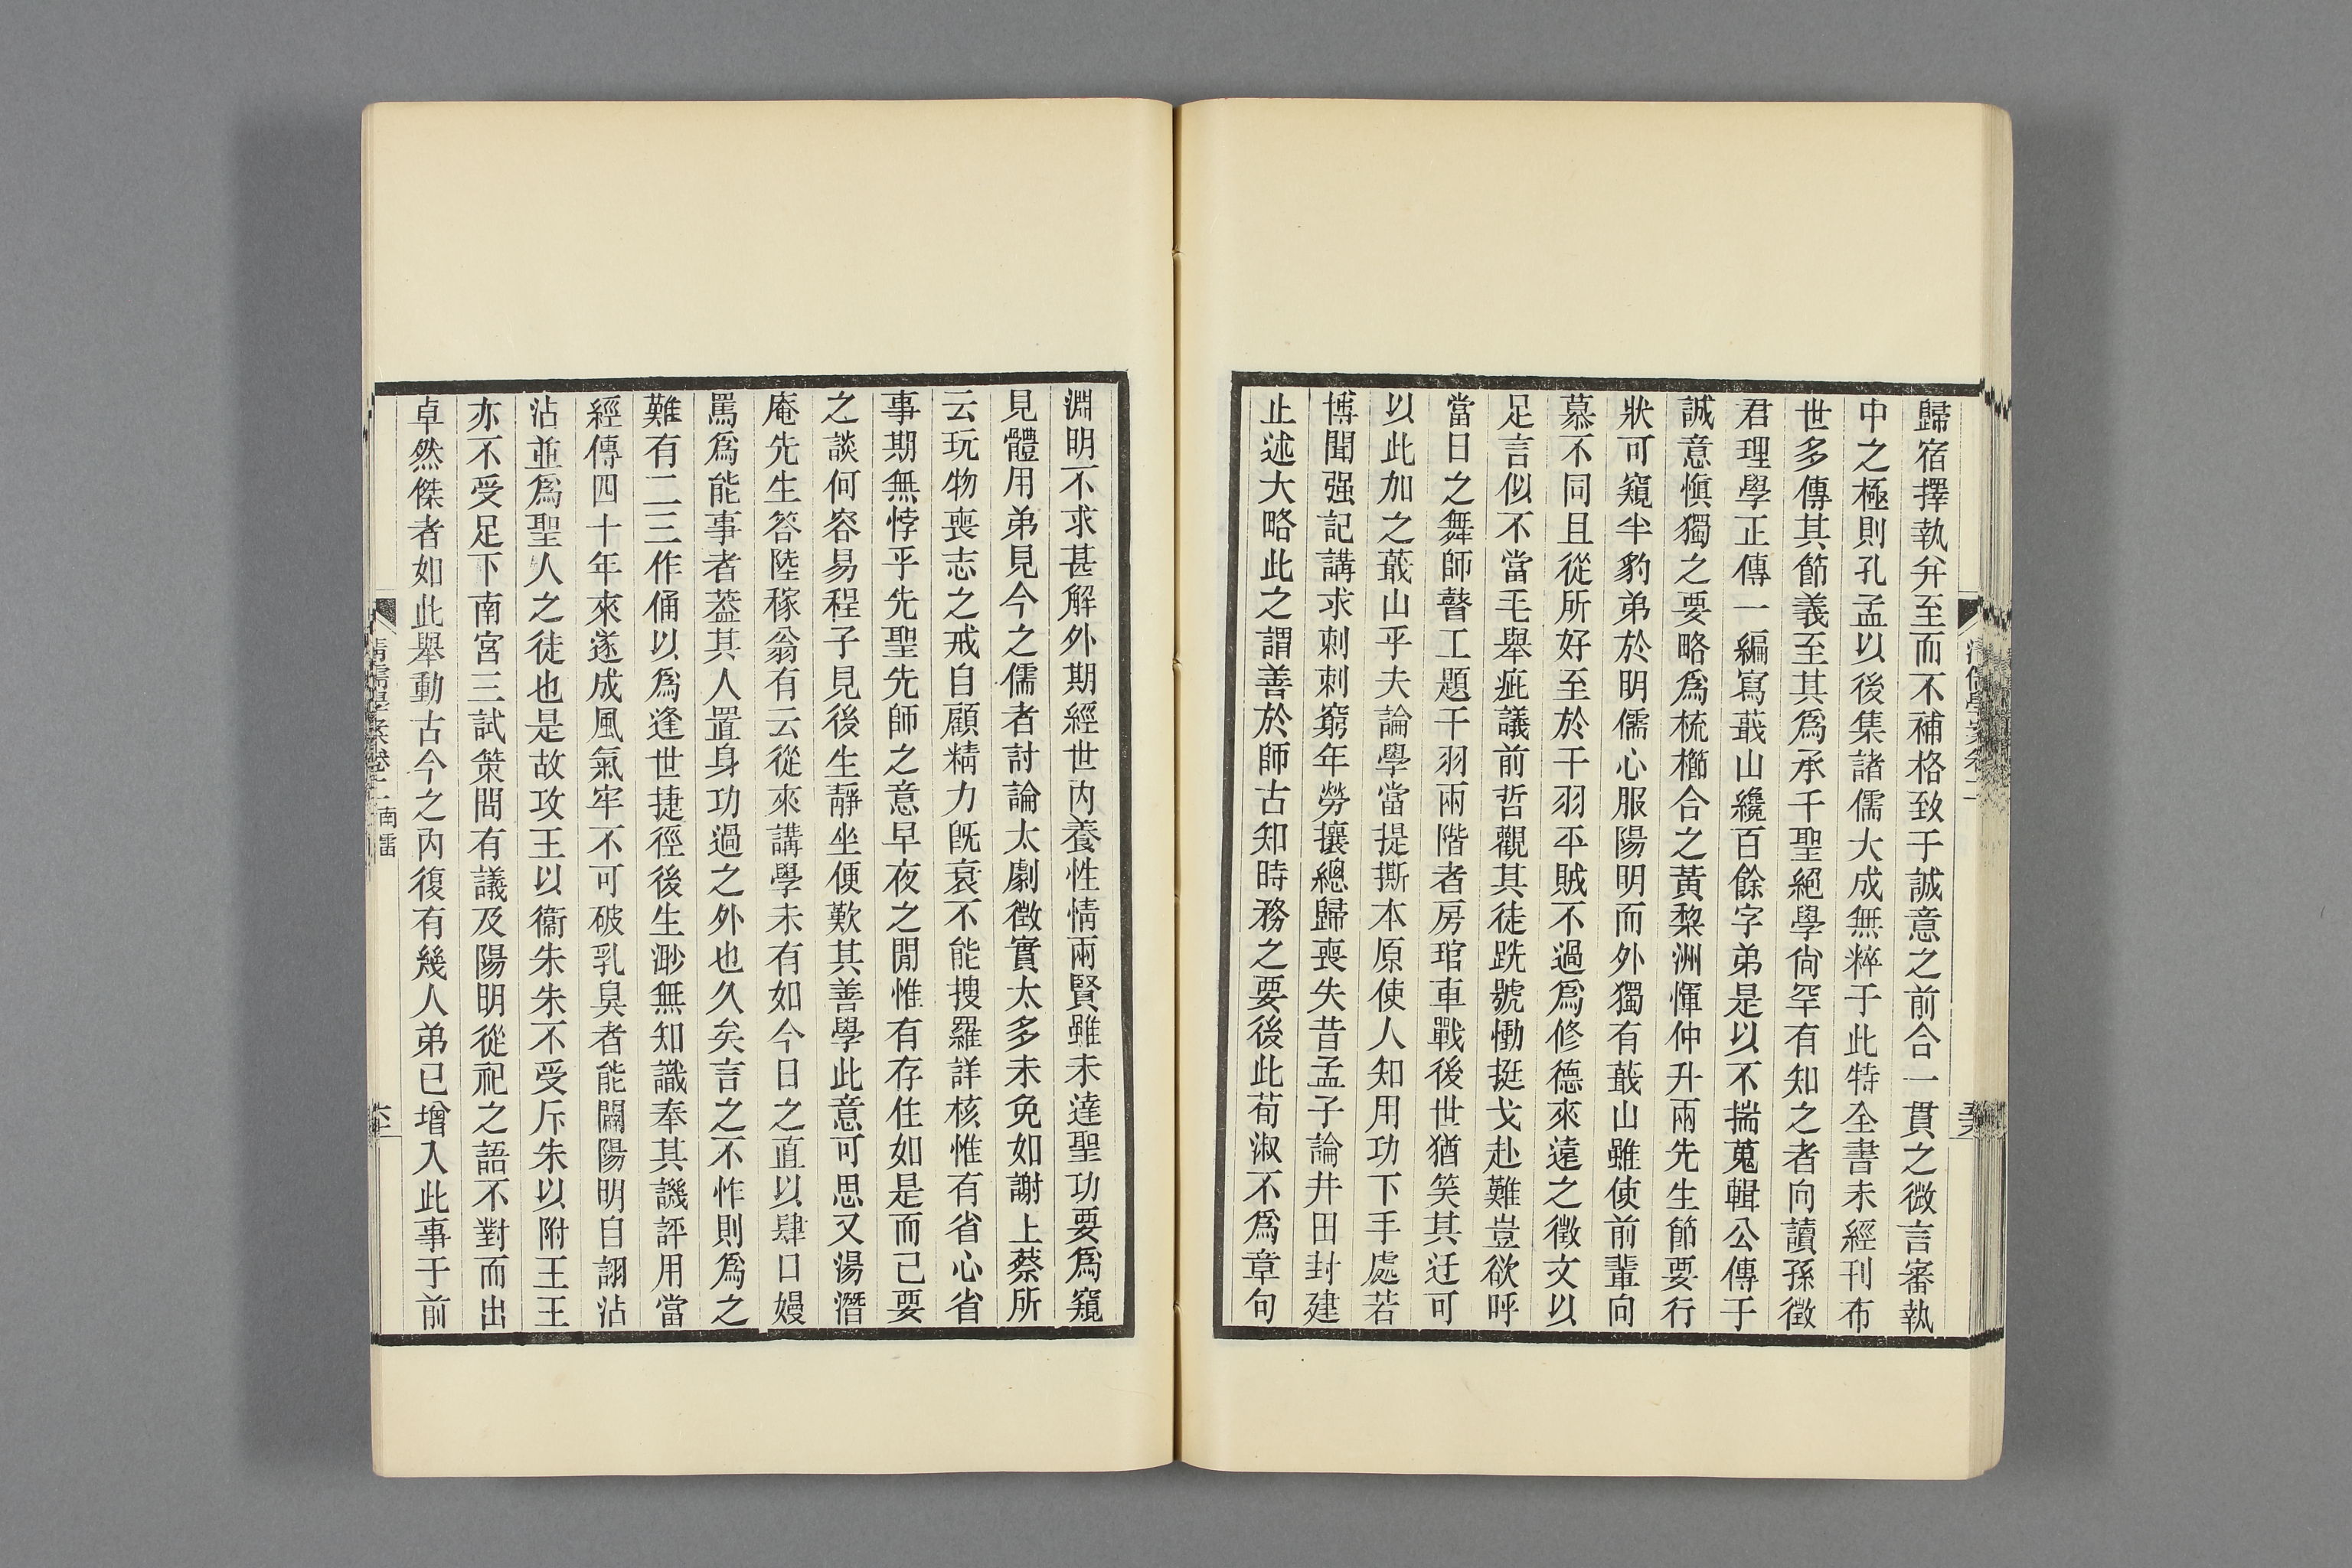 歸宿擇執弁至而不補格致于誠意之前合一貫之微言審執
中之極則孔孟以後集諸儒大成無粹于此特全書未經刊布
世多傳其節義至其爲承千聖絕學尙罕有知之者向讀孫徵
君理學正傳一編寫蕺山纔百餘字弟是以不揣蒐輯公傳于
誠意愼獨之要略爲梳櫛合之黃棃洲惲仲升兩先生節要行
狀可窺半豹弟於明儒心服陽明而外獨有蕺山雖使前輩向
慕不同且從所好至於干羽平賊不過爲修德來遠之徵文以
足言似不當毛舉疵議前哲觀其徒跣號慟挺戈赴難豈欲呼
當日之舞師瞽工題干羽兩階者房琯車戰後世猶笑其迂可
以此加之蕺山乎夫論學當提撕本原使人知用功下手處若
博聞强記講求刺刺窮年勞攘總歸喪失昔孟子論井田封建
止述大略此之謂善於師古知時務之要後此荀淑不爲章句
淵明不求甚解外期經世內養性情兩賢雖未達聖功要爲窺
見體用弟見今之儒者討論太劇徵實太多未免如謝上蔡所
云玩物喪志之戒自顧精力旣衰不能搜羅詳核惟有省心省
事期無悖乎先聖先師之意早夜之閒惟有存住如是而已要
之談何容易程子見後生靜坐便歎其善學此意可思又湯潛
庵先生答陸稼翁有云從來講學未有如今日之直以肆口嫚
罵爲能事者葢其人置身功過之外也久矣言之不怍則爲之
難有二三作俑以爲逢世捷徑後生渺無知識奉其譏評用當
經傳四十年來遂成風氣牢不可破乳臭者能闢陽明自詡沾
沾並爲聖人之徒也是故攻王以衞朱朱不受斥朱以附王王
亦不受足下南宮三試策問有議及陽明從祀之語不對而出
卓然傑者如此舉動古今之內復有幾人弟已增入此事于前
清儒學案卷二 南雷